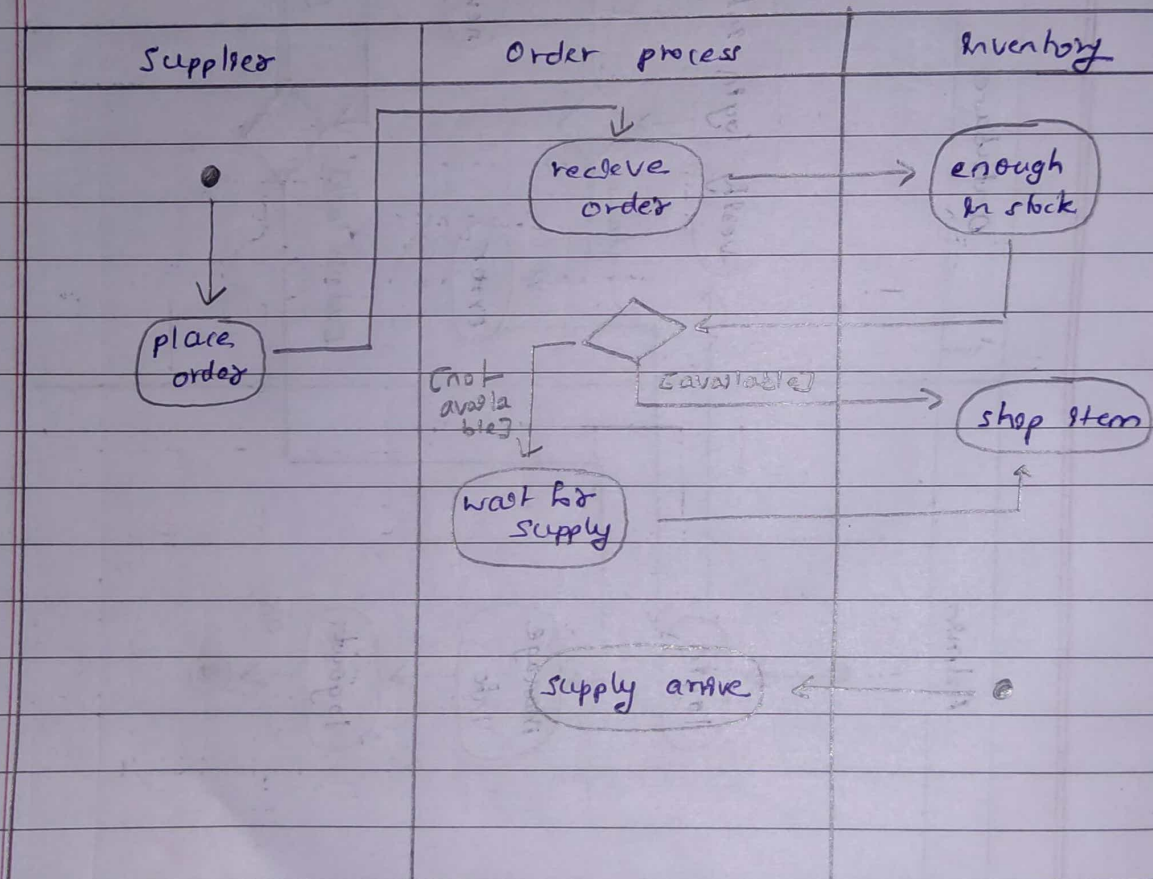 Supplier
Order process
Inventory
recieve
order
enough
in stock
place
order
[not
availa
ble]
[available]
shop item
wait for
supply
supply arrive